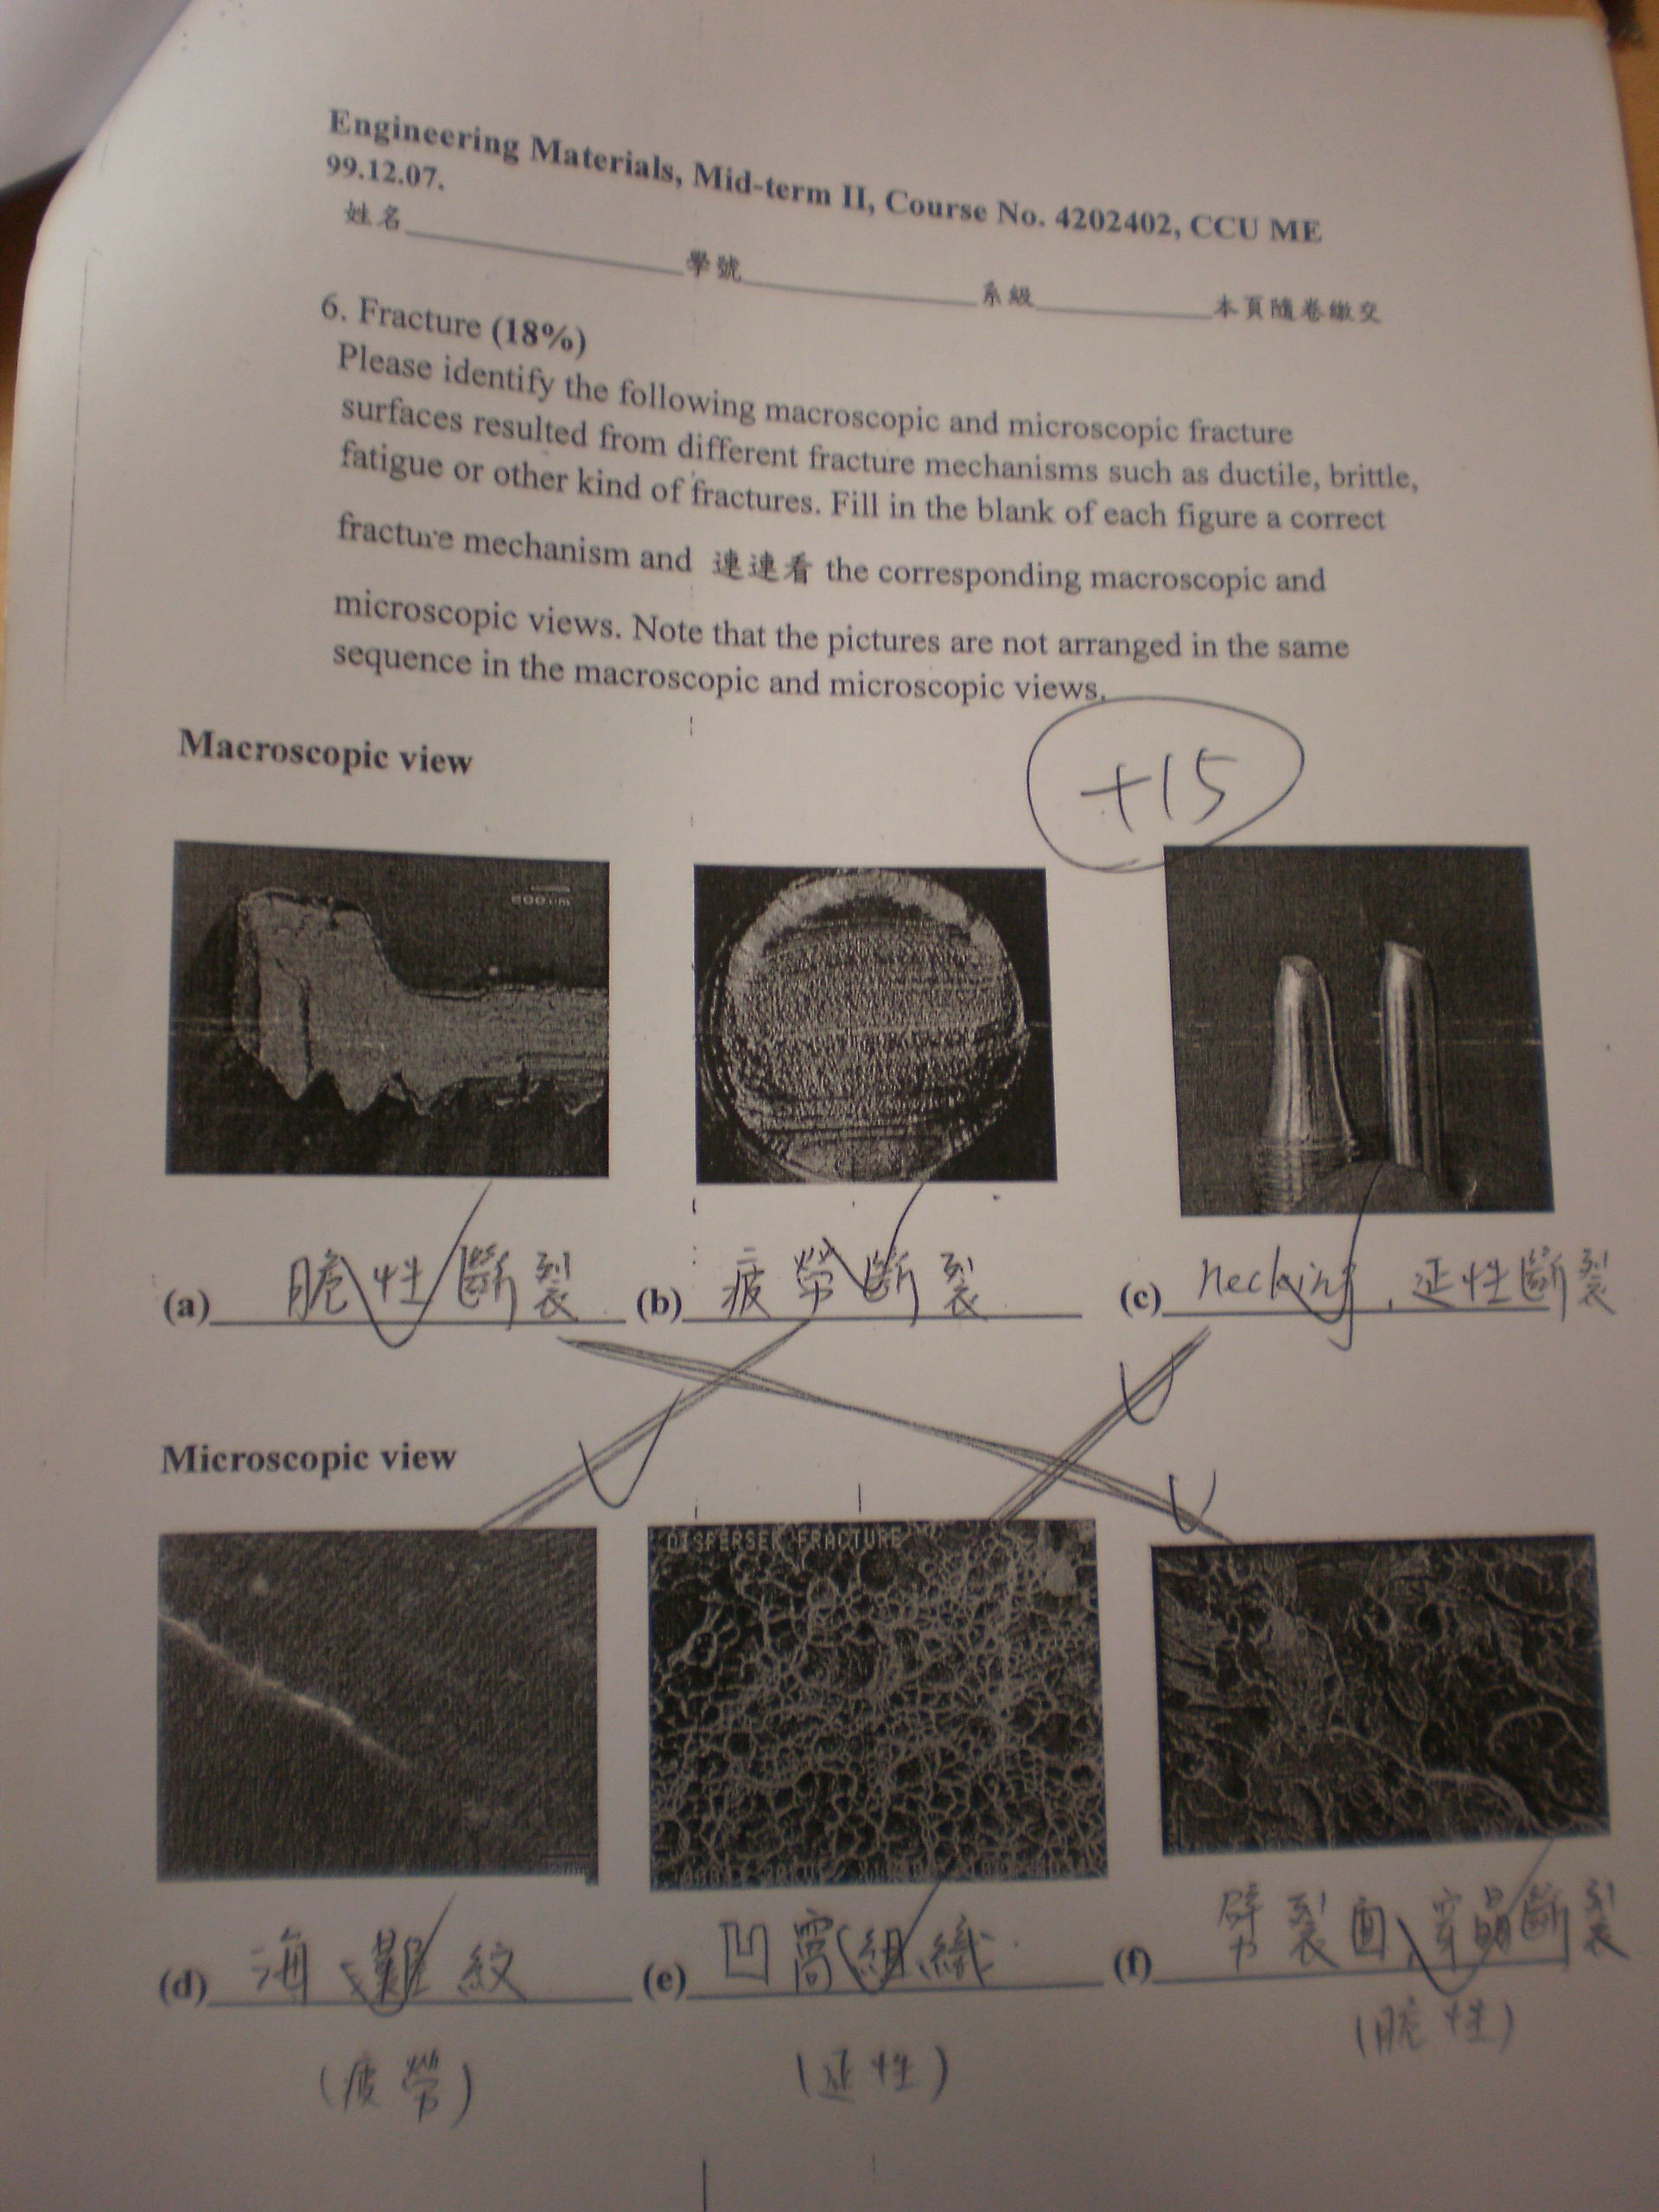 Engineering Materials, Mid-term II, Course No. 4202402, CCU ME
99.12.07.
姓名 學號 系級 本頁隨卷繳交
6. Fracture (18%)
Please identify the following macroscopic and microscopic fracture
surfaces resulted from different fracture mechanisms such as ductile, brittle,
fatigue or other kind of fractures. Fill in the blank of each figure a correct
fracture mechanism and 連連看 the corresponding macroscopic and
microscopic views. Note that the pictures are not arranged in the same
sequence in the macroscopic and microscopic views.
+15
Macroscopic view
(a) 脆性斷裂 (b) 疲勞斷裂 (c) necking, 延性斷裂
Microscopic view
FRACTURE
(d) 海灘紋 (e) 凹窩組織 (f) 劈裂面,穿晶斷裂
(疲勞) (延性) (脆性)